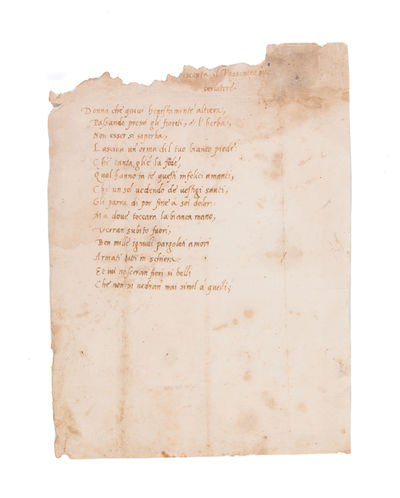 versatore
Donna che quivi honestamente altera,
Passando preme gli fioretti, e l'herba,
Non esser sì superba,
Lascia un' orma del tuo bianco piede
Che tanta gliè la fede,
Qual hanno in te questi infelici amanti,
Che un sol vedendo de vestigi santi,
Gli parrà di por fine a soi dolori
Ma dove toccarà la bianca mano,
Verran subito fuori,
Ben mille ignudi pargoleti amori
Armati tutti in schiera
Et mi nasceran fiori sì belli
Che non si vedran mai simil à quelli,